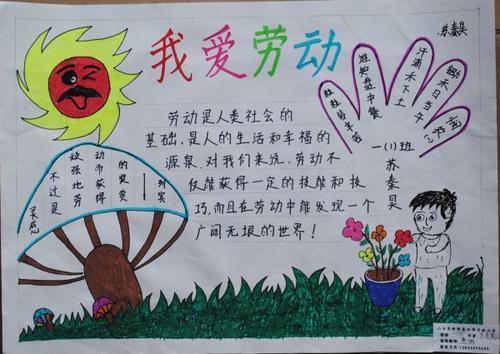 苏秦昊
我爱劳动
劳动是人类社会的
基础，是人的生活和幸福的
源泉．对我们来说，劳动不
仅能获得一定的技能和技
巧，而且在劳动中能发现一个
广阔无垠的世界！
锄禾日当午
汗滴禾下土
谁知盘中餐
粒粒皆辛苦
一(1)班
苏秦昊
灵感
不过是
顽强地劳
动而获得
的奖赏
——列宾